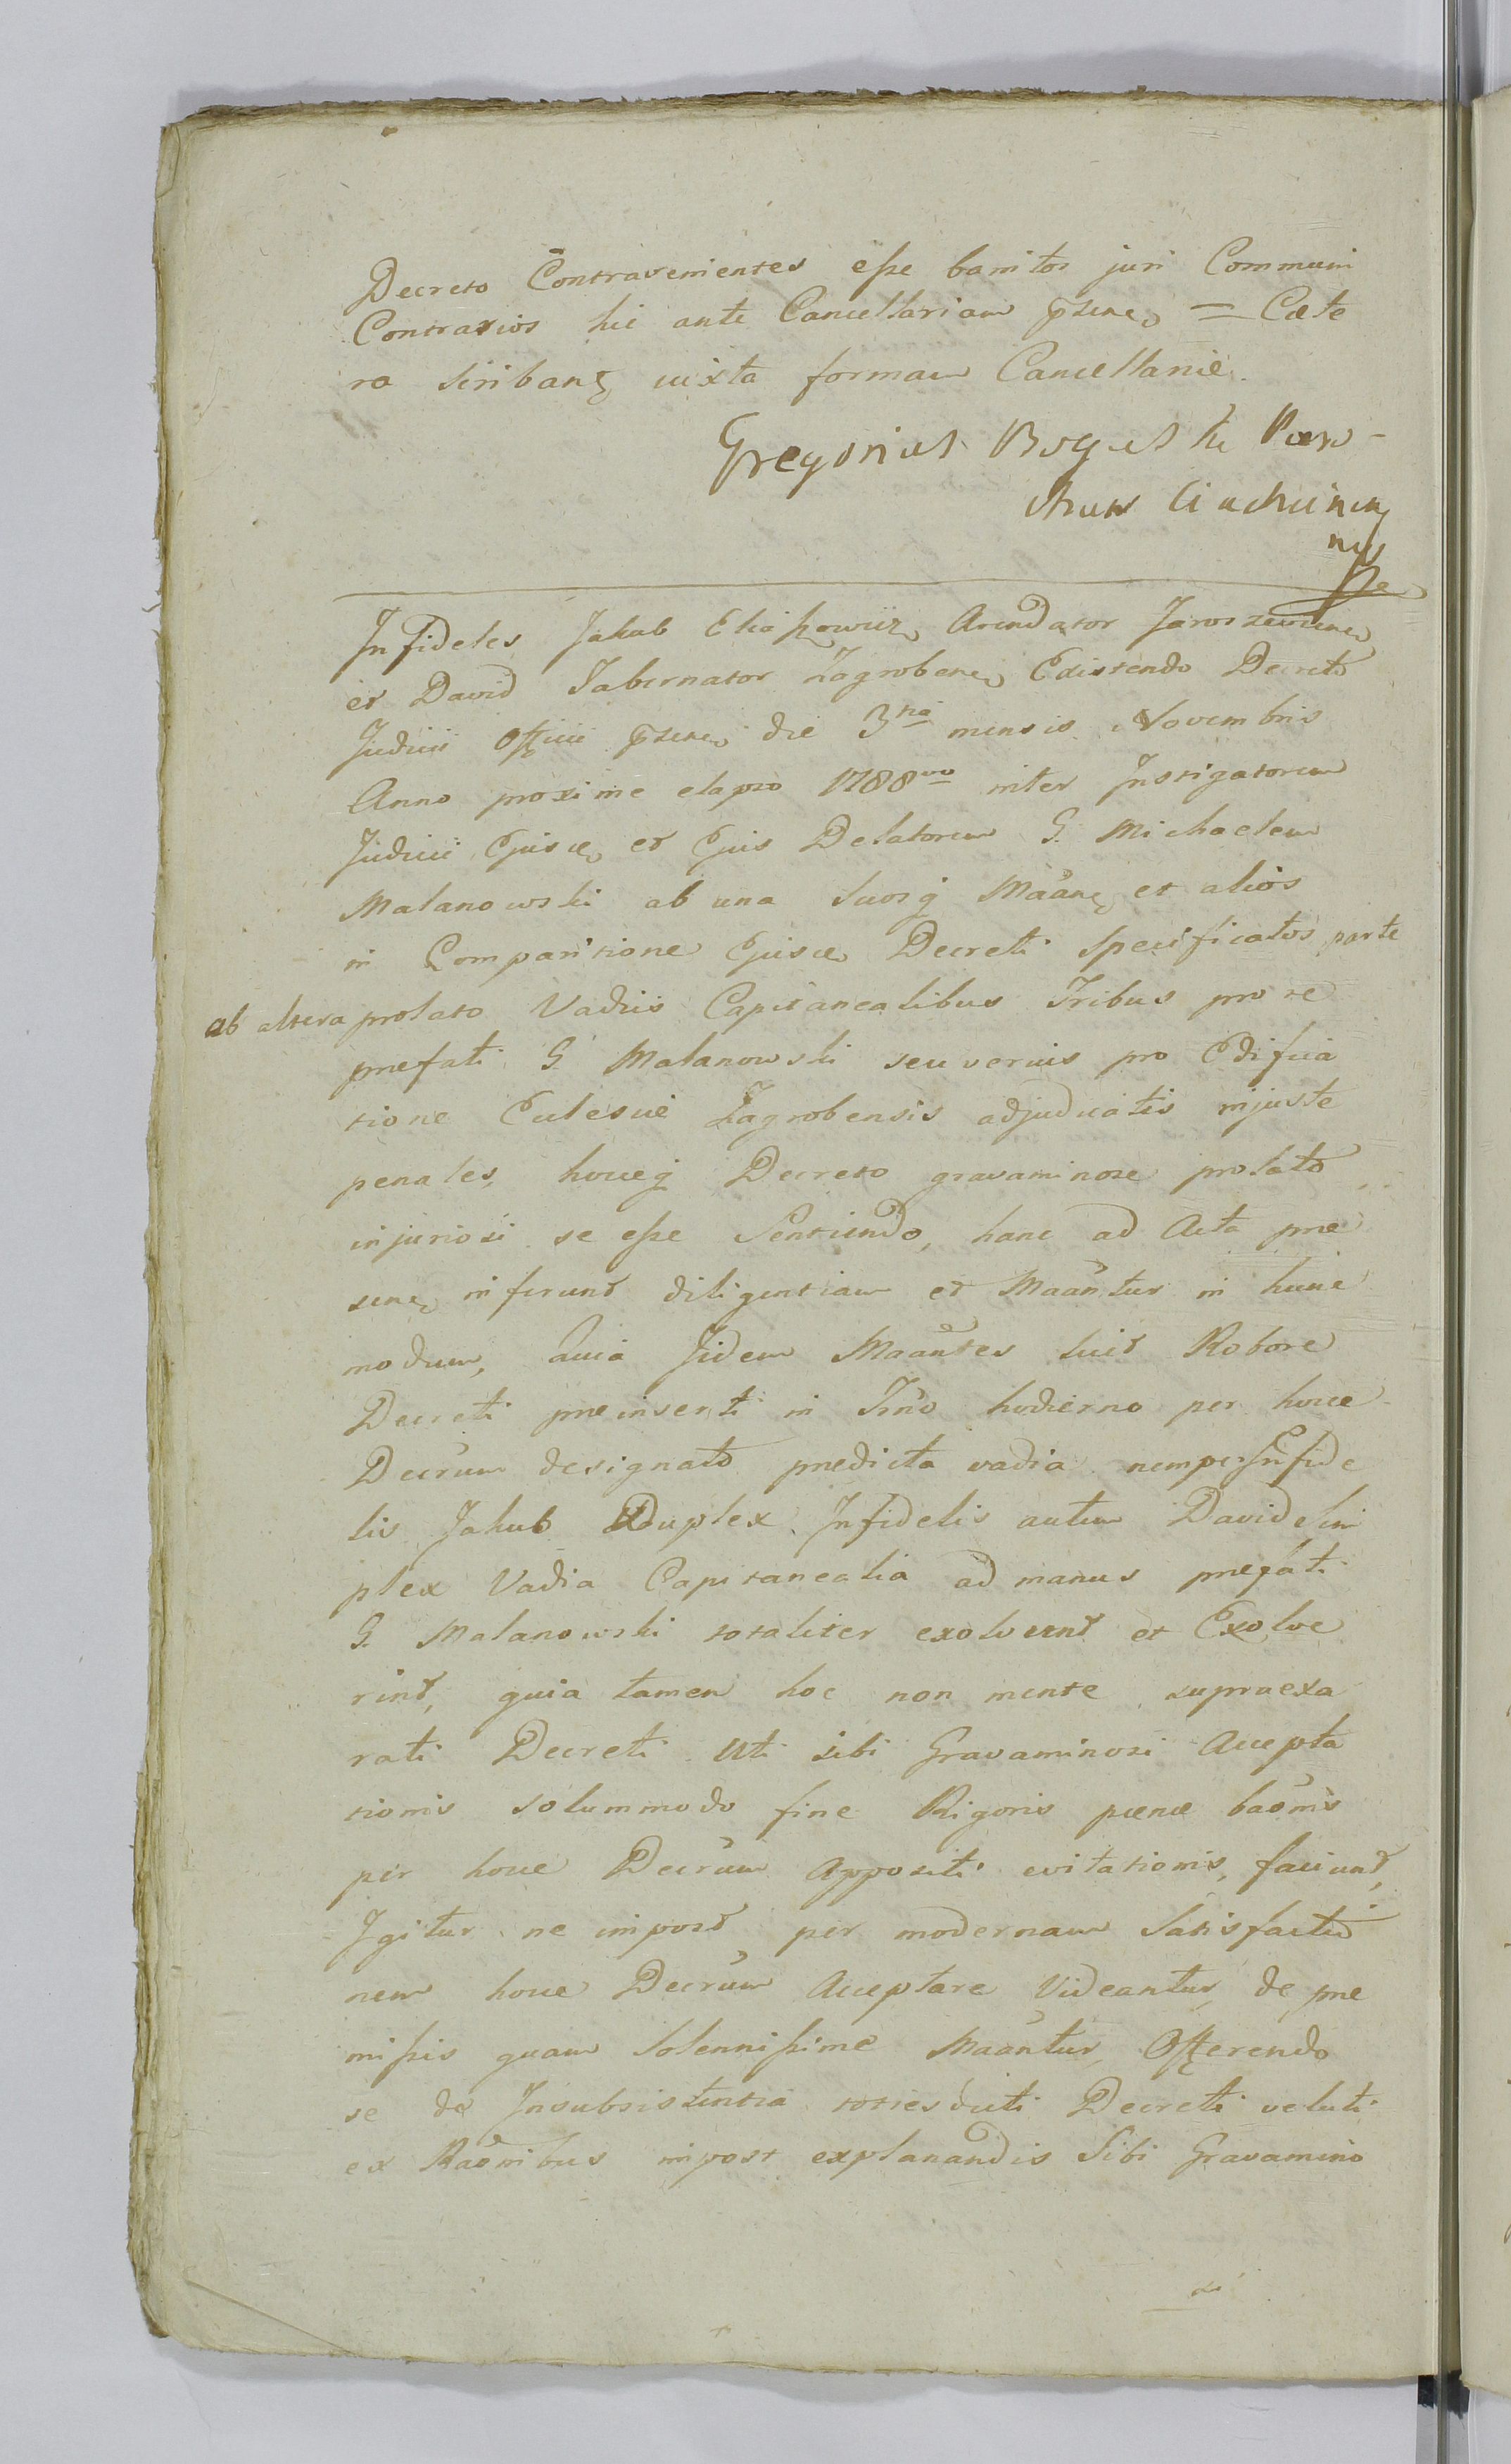 Decreto Contravenientes esse banitos juri Communi
Contrarios hic ante Cancellariam pzsenc = Cæte
ra scribantʒ iuxta formam Cancellarie.
Gregorius
Infideles Jakub Eliaszowicz Arendator Jaroszewicens
et David Tabernator Zagrobens Existendo Decreto
Judicii Officii pzsens die 3tia mensis Novembris
Anno proxime elapso 1788vo inter Instigatorem
Judicii Ejusce et Ejus Delatorem G. Michaelem
Malanowski ab una Suosq Maãnes et alios
in Comparitione Ejusce Decreti Specificatos parte
ab altera prolato Vadiis Capitanealibus Tribus pro re
prefati G. Malanowski seu verius pro Edifica
tione Eclesiæ Zagrobensis adjudicatis injuste
penales, hoceq Decreto gravaminose prolato
injuriosi se esse Sentiendo, hanc ad Acta præ
senc inferunt diligentiam et Maãntur in hunc
modum, quia Iidem Maãntes licet Robore
Decreti præinserti in Trño hodierno per hoce
Decrũm designato predicta vadia nempe Infide
lis Jakub Duplex Infidelis autem David Sim
plex Vadia Capitanealia ad manus prefati
G. Malanowski totaliter exolvunt et Exolve
rint, quia tamen hoc non mente supraexa
rati Decreti uti sibi Gravaminosi Accepta
tionis solummodo fine Rigoris pœnæ baõnis
per hoce Decrũm Appositi evitationis, faciunt,
Igitur ne impost per modernam Satisfactio
nem hoce Decrũm Acceptare Videantur, de præ
missis quam Solennissime Maãntur, Offerendo
se de Insubsistentia totiesdicti Decreti veluti
ex Raõnibus impost explanandis Sibi Gravamino
si